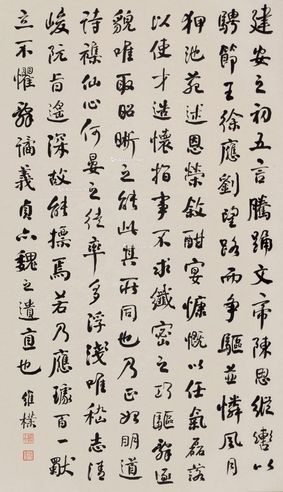 建安之初五言騰踊文帝陳思縱轡以
騁節王徐應劉望路而爭驅並憐風月
狎池苑述恩榮敘酣宴慷慨以任氣磊落
以使才造懷指事不求纖密之巧驅辭逐
貌唯取昭晰之能此其所同也乃正始明道
詩襍仙心何晏之徒率多浮淺唯嵇志清
峻阮旨遙深故能標焉若乃應璩百一獸
立不懼辭譎義貞亦魏之遺直也 維樸